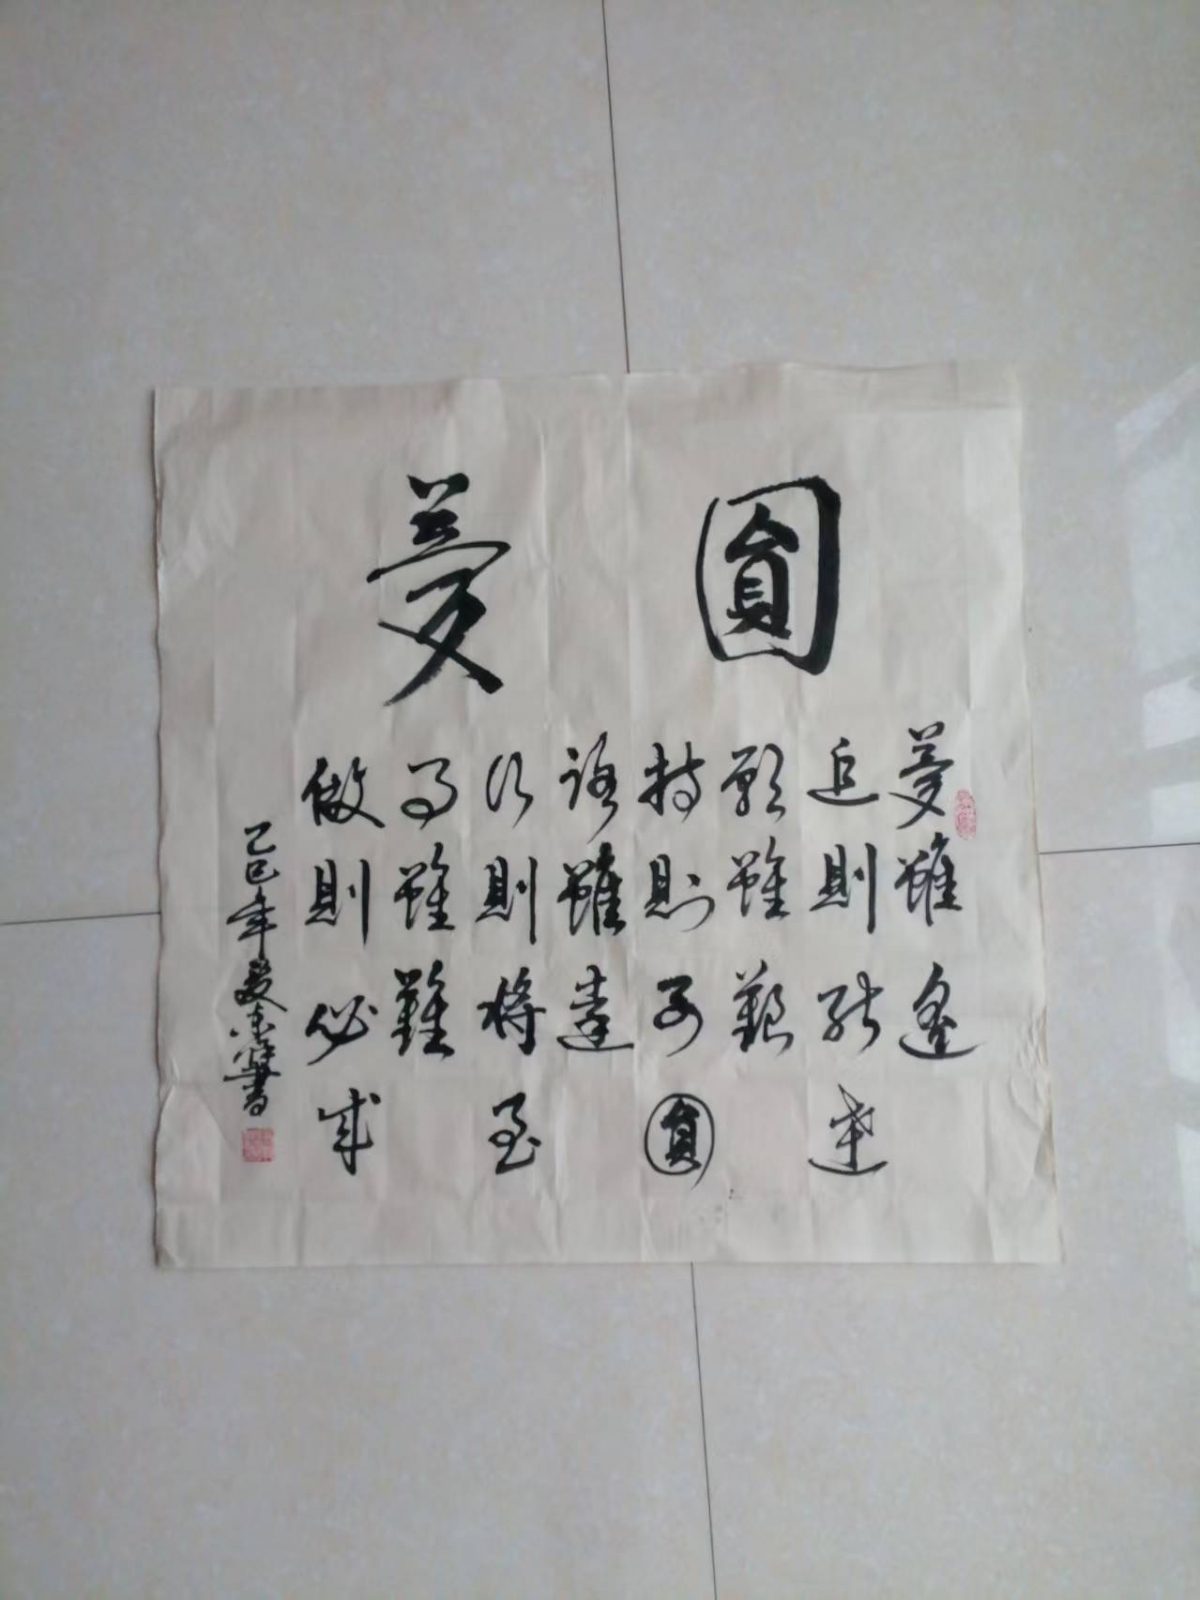 圓夢
夢雖遙
追則能達
願雖艱
持則可圓
路雖遠
行則將至
事雖難
做則必成
乙巳年 書